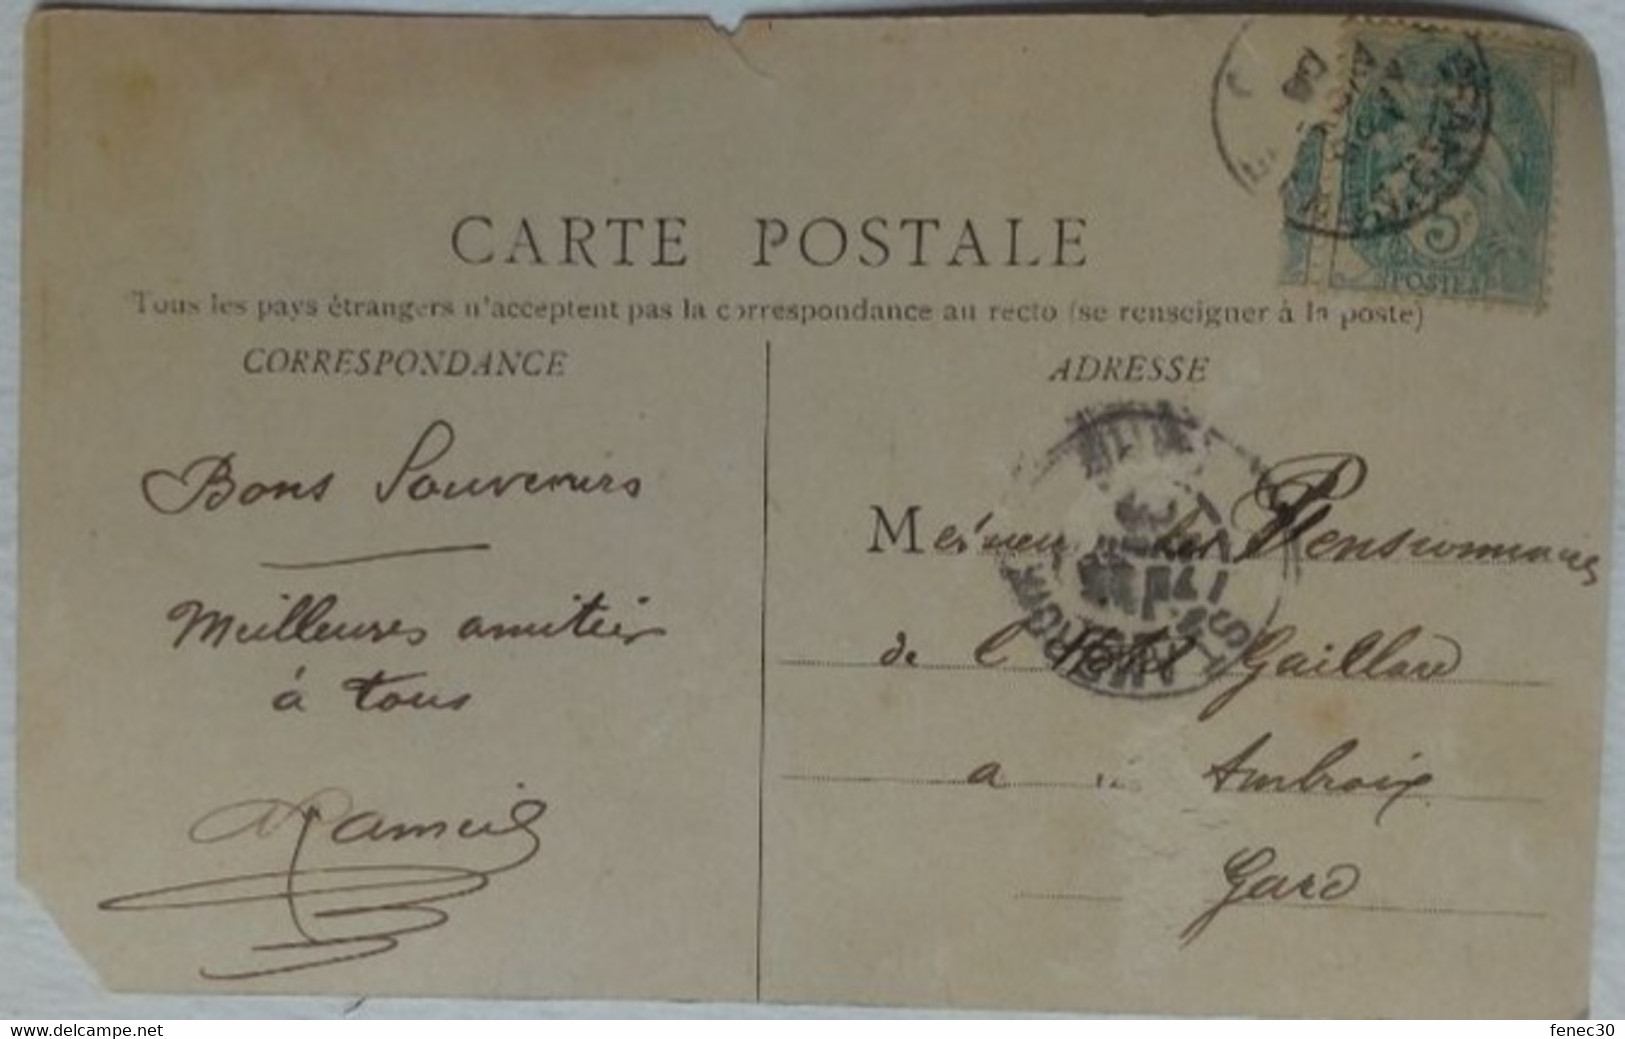 CARTE POSTALE
Tous les pays étrangers n'acceptent pas la correspondance au recto (se renseigner à la poste)
CORRESPONDANCE
ADRESSE
Bons Souvenirs
Meilleures amitiés
à tous
Messieurs les Pensionnaires
de l'Hôtel Gaillard
a Ambroix
Gard
5c
POSTES
ST AMBROIX
www.delcampe.net
fenec30